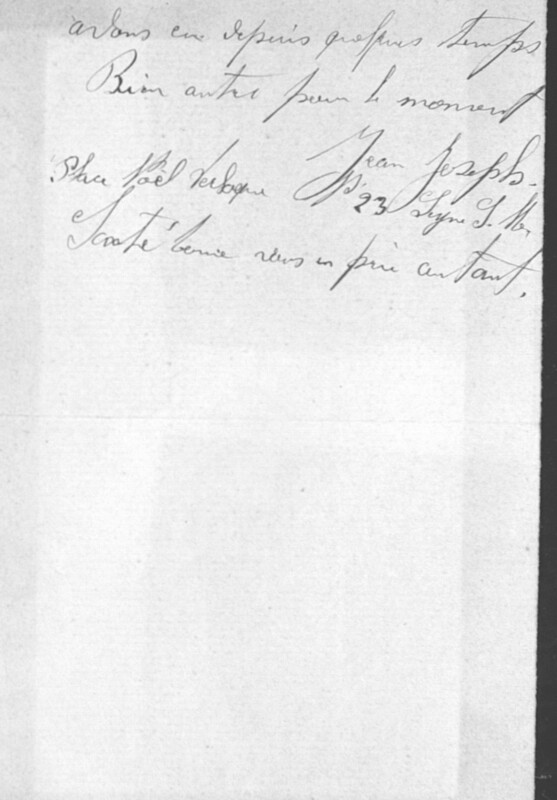 avons eu depuis quelques temps
Bien autre pour le moment
Jean Joseph.
Place Noël Verlaque N° 23 Seyne S. Mer
Santé bonne vous en prie autant.